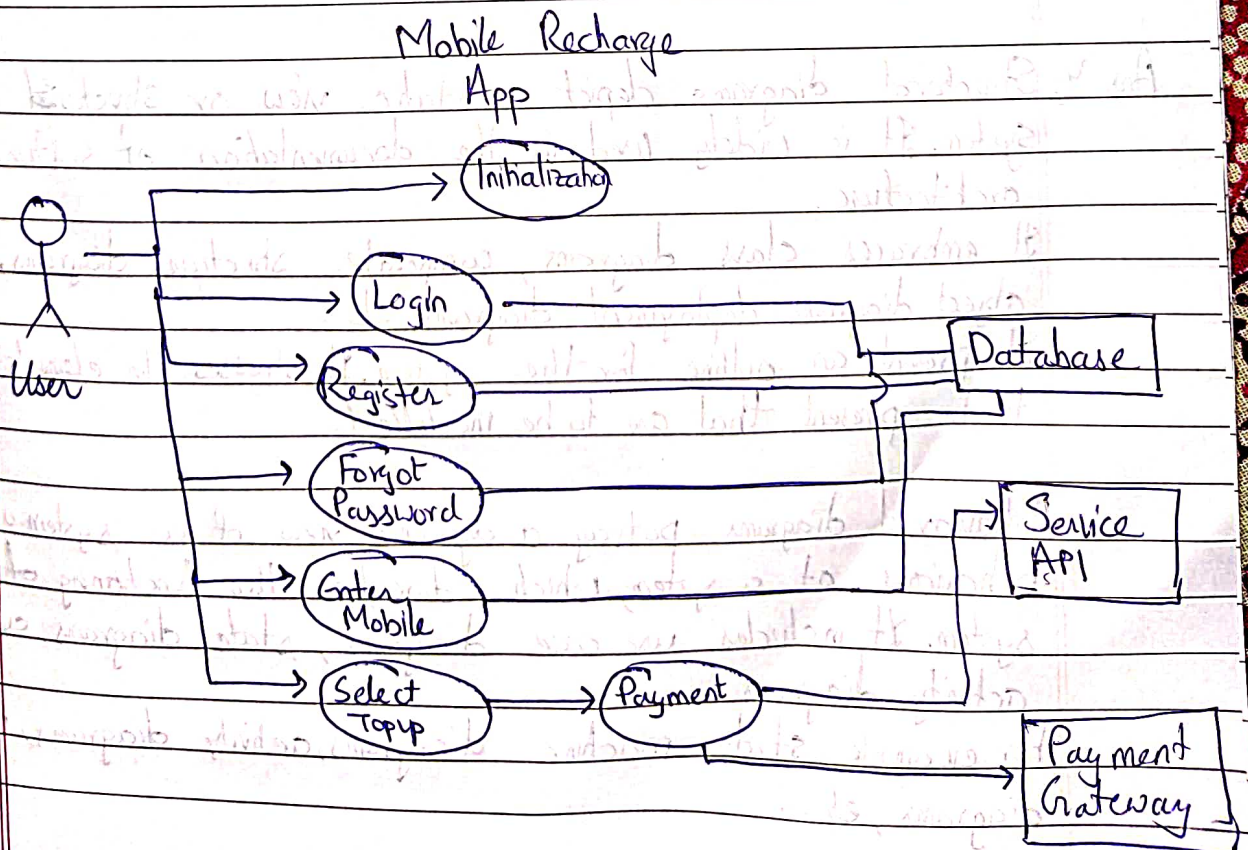 Mobile Recharge
App
Initialization
User
Login
Register
Forgot
Password
Enter
Mobile
Select
Topup
Payment
Database
Service
API
Payment
Gateway